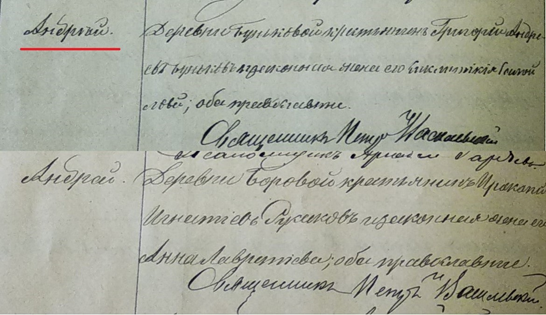 Андрей. Деревни Буньковой крестьянинъ Григорій Андре-
евъ Буньковъ и законная жена его
лова; оба православные.
Священникъ Петръ
Андрей. Деревни Боровой крестьянинъ Прокопій
Игнатіевъ и законная жена его
Анна Лаврентіева; оба православные.
Священникъ Петръ